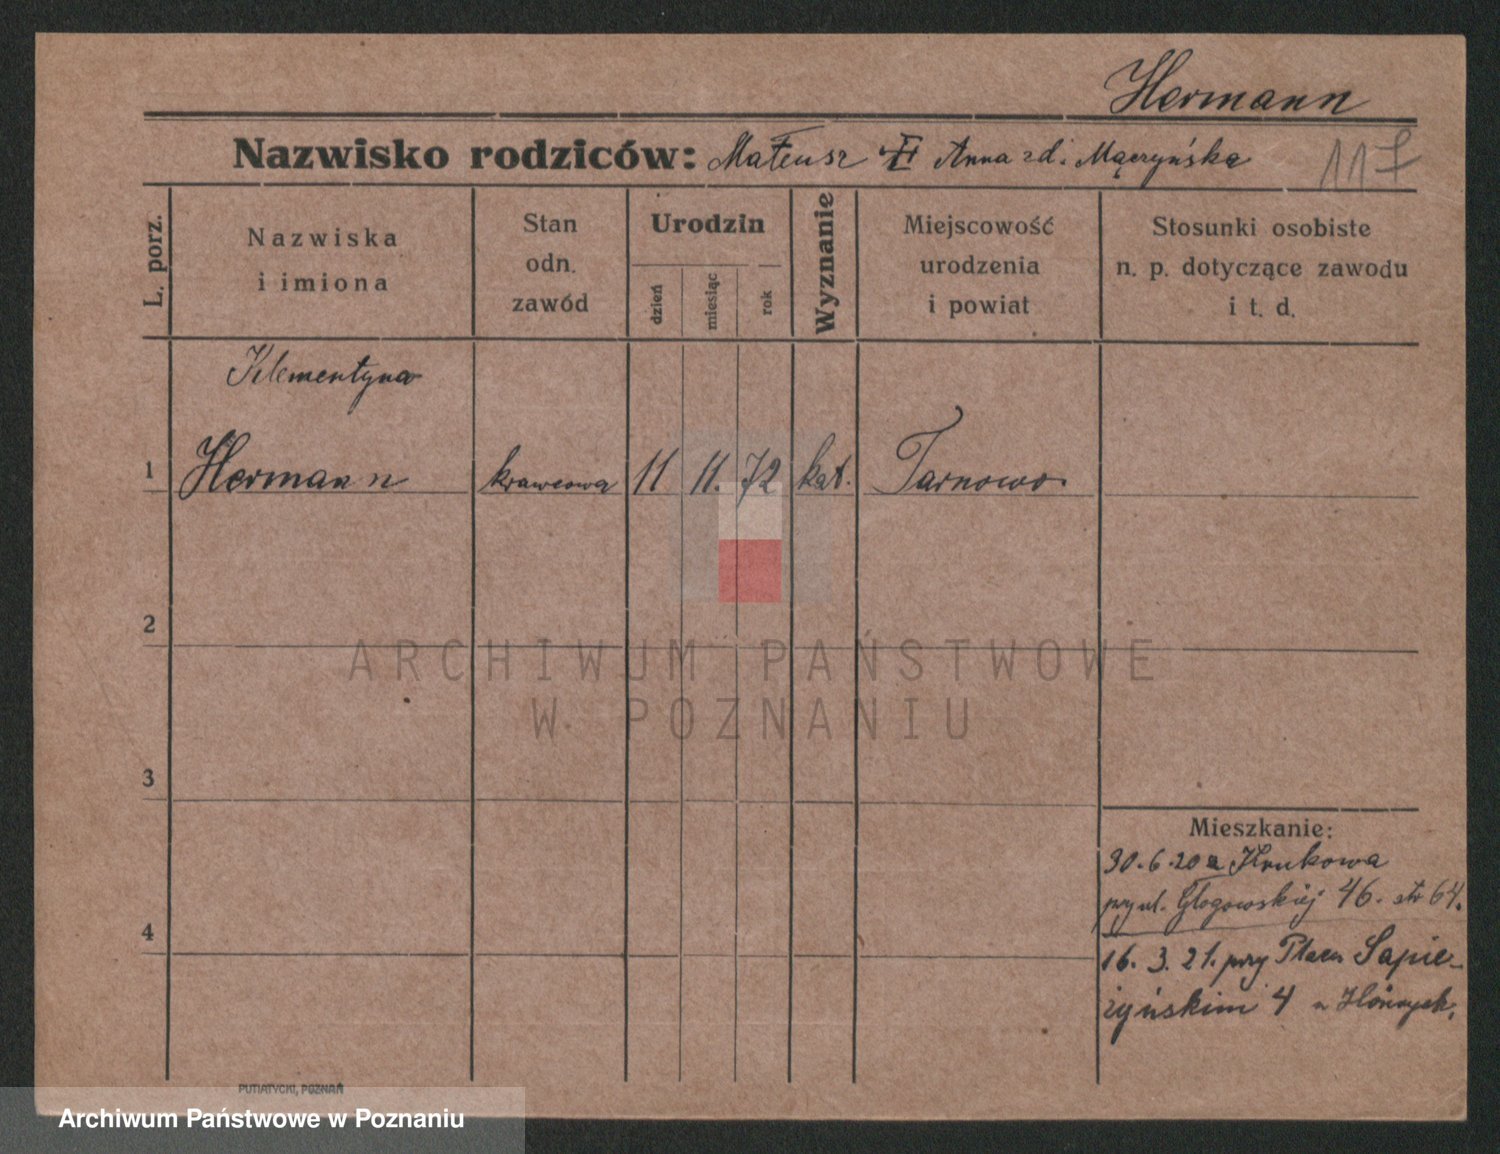 Hermann
Nazwisko rodziców: Mateusz Anna zd. Mączyńska
117
L. porz.
Nazwiska
i imiona
Stan
odn.
zawód
Urodzin
dzień
miesiąc
rok
Wyznanie
Miejscowość
urodzenia
i powiat
Stosunki osobiste
n. p. dotyczące zawodu
i t. d.
Klementyna
1 Hermann krawcowa 11 11. 72 kat. Tarnowo.
2
ARCHIWUM PAŃSTWOWE
W POZNANIU
3
Mieszkanie:
30.6.20 Krukowa
przy ul. Głogowskiej 46. str 64.
4
16. 3. 21. przy Placu Sapie-
żyńskim 4
PUTIATYCKI, POZNAŃ
Archiwum Państwowe w Poznaniu